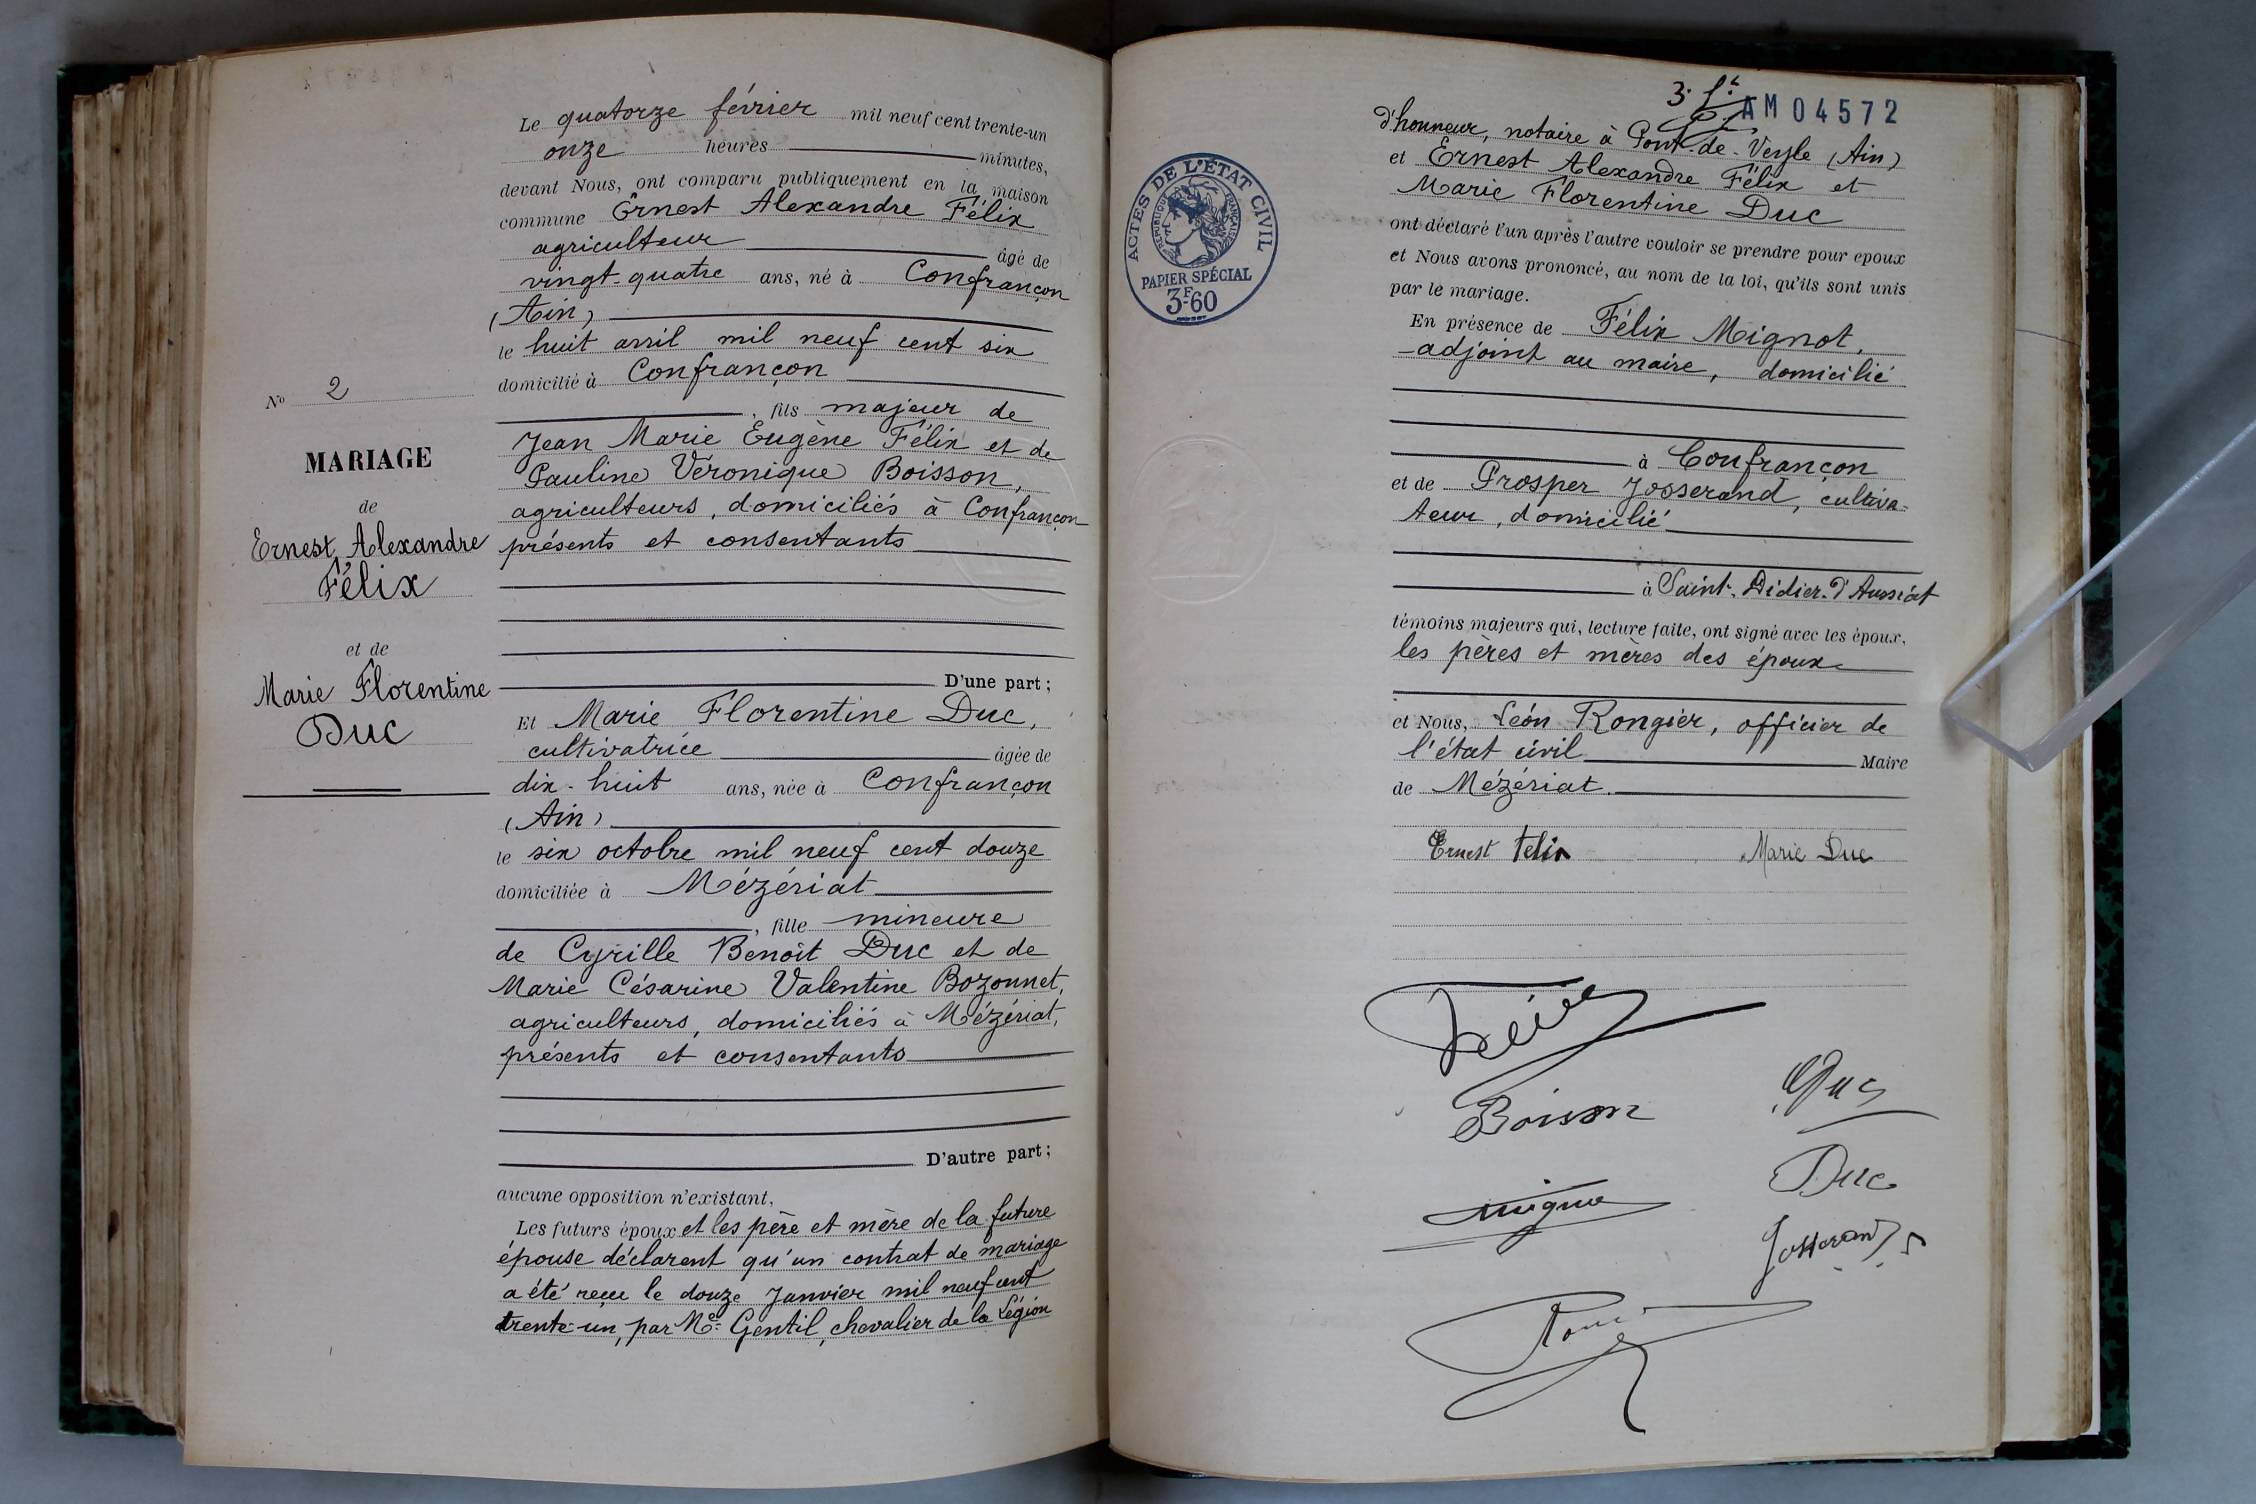 Le quatorze février mil neuf cent trente-un
onze heures minutes,
devant Nous, ont comparu publiquement en la maison
commune Ernest Alexandre Félix
agriculteur âgé de
vingt-quatre ans, né à Confrançon
(Ain)
le huit avril mil neuf cent six
domicilié à Confrançon
, fils majeur de
Jean Marie Eugène Félix et de
Pauline Véronique Boisson,
agriculteurs, domiciliés à Confrançon
présents et consentants
D'une part;
No 2
MARIAGE
de
Ernest Alexandre
Félix
et de
Marie Florentine
Duc
Et Marie Florentine Duc,
cultivatrice âgée de
dix-huit ans, née à Confrançon
(Ain)
le six octobre mil neuf cent douze
domiciliée à Mézériat
, fille mineure
de Cyrille Benoît Duc et de
Marie Césarine Valentine Bozonnet,
agriculteurs, domiciliés à Mézériat,
présents et consentants
D'autre part;
aucune opposition n'existant,
Les futurs époux et les père et mère de la future
épouse déclarent qu'un contrat de mariage
a été reçu le douze Janvier mil neuf cent
trente-un, par Me Gentil, chevalier de la Légion
AM04572
d'honneur, notaire à Pont-de-Veyle (Ain)
et Ernest Alexandre Félix et
Marie Florentine Duc
ont déclaré l'un après l'autre vouloir se prendre pour epoux
et Nous avons prononcé, au nom de la loi, qu'ils sont unis
par le mariage.
En présence de Félix Mignot,
adjoint au maire, domicilié
à Confrançon
et de Prosper Josserand, cultiva-
teur, domicilié
à Saint-Didier-d'Aussiat
témoins majeurs qui, lecture faite, ont signé avec les époux,
les pères et mères des époux
et Nous, Léon Rongier, officier de
l'état civil Maire
de Mézériat.
Ernest Felix Marie Duc
Félix
Boisson Duc
Duc
Mignot
Josserand
ACTES DE L'ÉTAT CIVIL
RÉPUBLIQUE FRANÇAISE
PAPIER SPÉCIAL
3F60